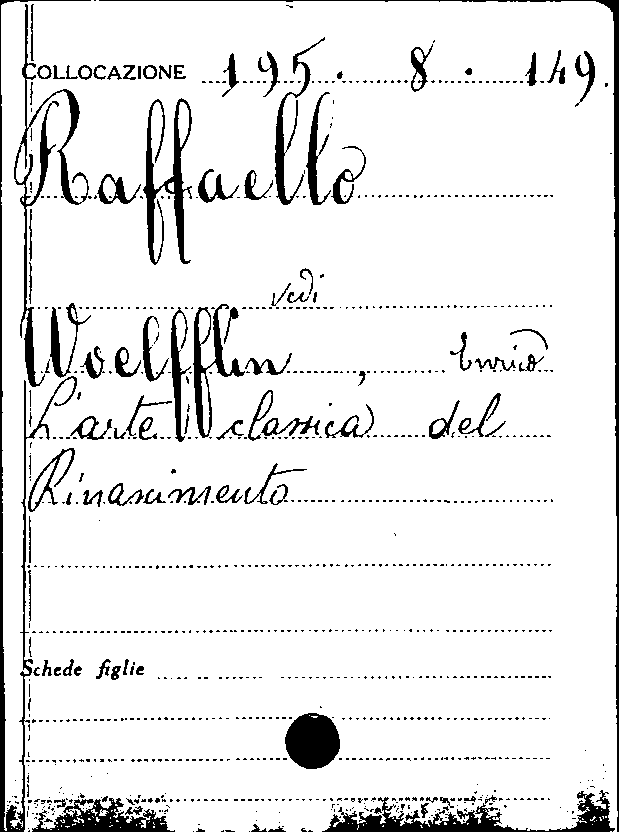 COLLOCAZIONE 195. 8. 149.
Raffaello
vedi
Woelfflin, Enrico
L'arte classica del
Rinascimento
Schede figlie